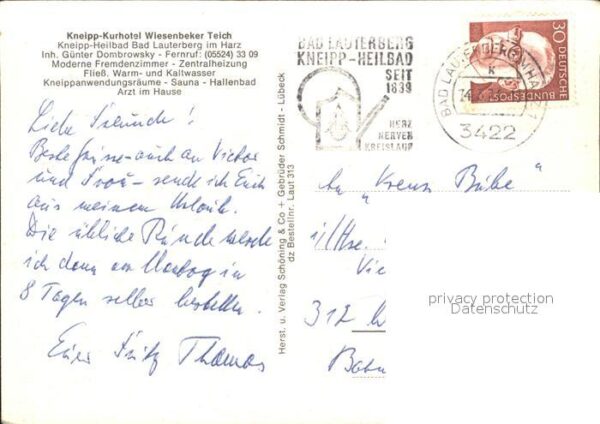 Kneipp-Kurhotel Wiesenbeker Teich
Kneipp-Heilbad Bad Lauterberg im Harz
Inh. Günter Dombrowsky - Fernruf: (05524) 33 09
Moderne Fremdenzimmer - Zentralheizung
Fließ. Warm- und Kaltwasser
Kneippanwendungsräume - Sauna - Hallenbad
Arzt im Hause
Liebe Freunde!
Beste Grüsse auch an Victor
und Frau - sende ich Euch
aus meinem Urlaub.
Die übliche Runde werde
ich dann am Montag in
8 Tagen selber bestellen.
Euer Fritz Thomas
Herst. u. Verlag Schöning & Co + Gebrüder Schmidt - Lübeck
dz Bestellnr. Laut 313
BAD LAUTERBERG
KNEIPP-HEILBAD
SEIT
1839
HERZ
NERVEN
KREISLAUF
BAD LAUTERBERG IM HARZ 1
3422
30
DEUTSCHE
BUNDESPOST
An "
312
privacy protection
Datenschutz